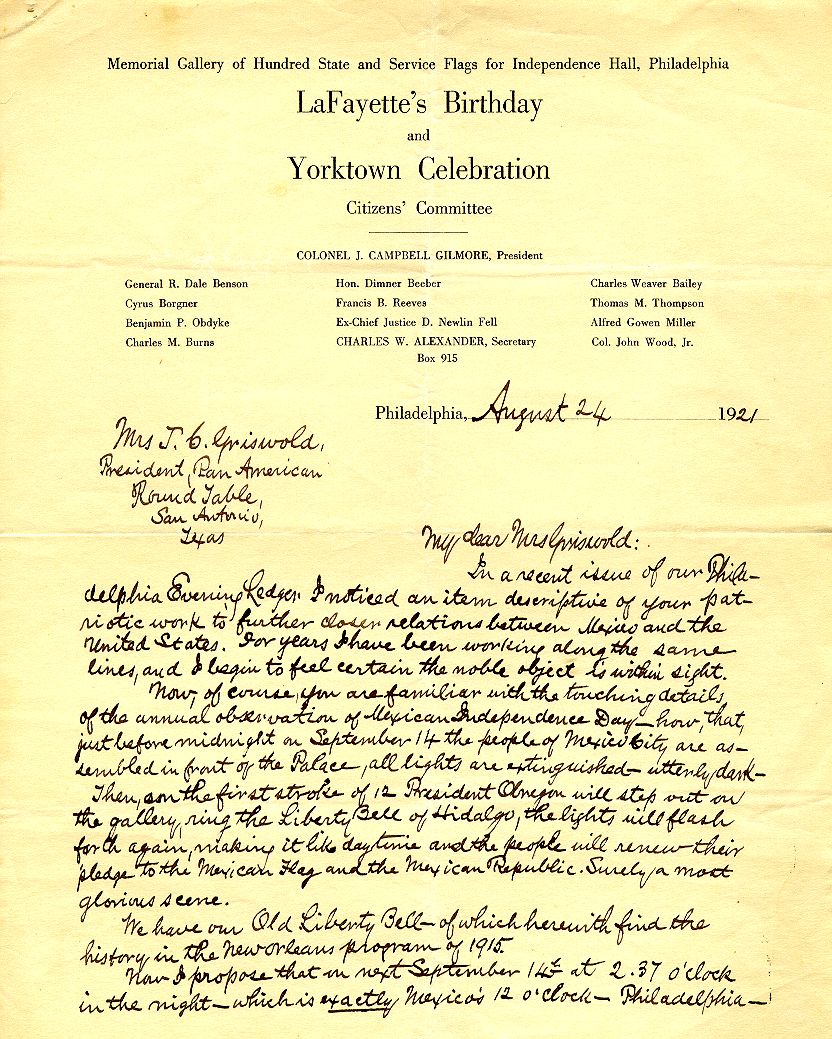 Memorial Gallery of Hundred State and Service Flags for Independence Hall, Philadelphia
LaFayette's Birthday
and
Yorktown Celebration
Citizens' Committee
COLONEL J. CAMPBELL GILMORE, President
General R. Dale Benson
Cyrus Borgner
Benjamin P. Obdyke
Charles M. Burns
Hon. Dimner Beeber
Francis B. Reeves
Ex-Chief Justice D. Newlin Fell
CHARLES W. ALEXANDER, Secretary
Box 915
Charles Weaver Bailey
Thomas M. Thompson
Alfred Gowen Miller
Col. John Wood, Jr.
Philadelphia, August 24 1921
Mrs J. C. Griswold,
President, Pan American
Round Table,
San Antonio,
Texas
My dear Mrs Griswold:
In a recent issue of our Phila-
delphia Evening Ledger I noticed an item descriptive of your pat-
riotic work to further closer relations between Mexico and the
United States. For years I have been working along the same
lines, and I begin to feel certain the noble object is within sight.
Now, of course, you are familiar with the touching details
of the annual observation of Mexican Independence Day—how, that,
just before midnight on September 14 the people of Mexico City are as-
sembled in front of the Palace, all lights are extinguished—utterly dark—
Then, on the first stroke of 12 President Obregon will step out on
the gallery, ring the Liberty Bell of Hidalgo, the lights will flash
forth again, making it like daytime and the people will renew their
pledge to the Mexican Flag and the Mexican Republic. Surely a most
glorious scene.
We have our Old Liberty Bell—of which herewith find the
history in the New Orleans program of 1915.
Now I propose that on next September 14th at 2.37 o'clock
in the night—which is exactly Mexico's 12 o'clock—Philadelphia—